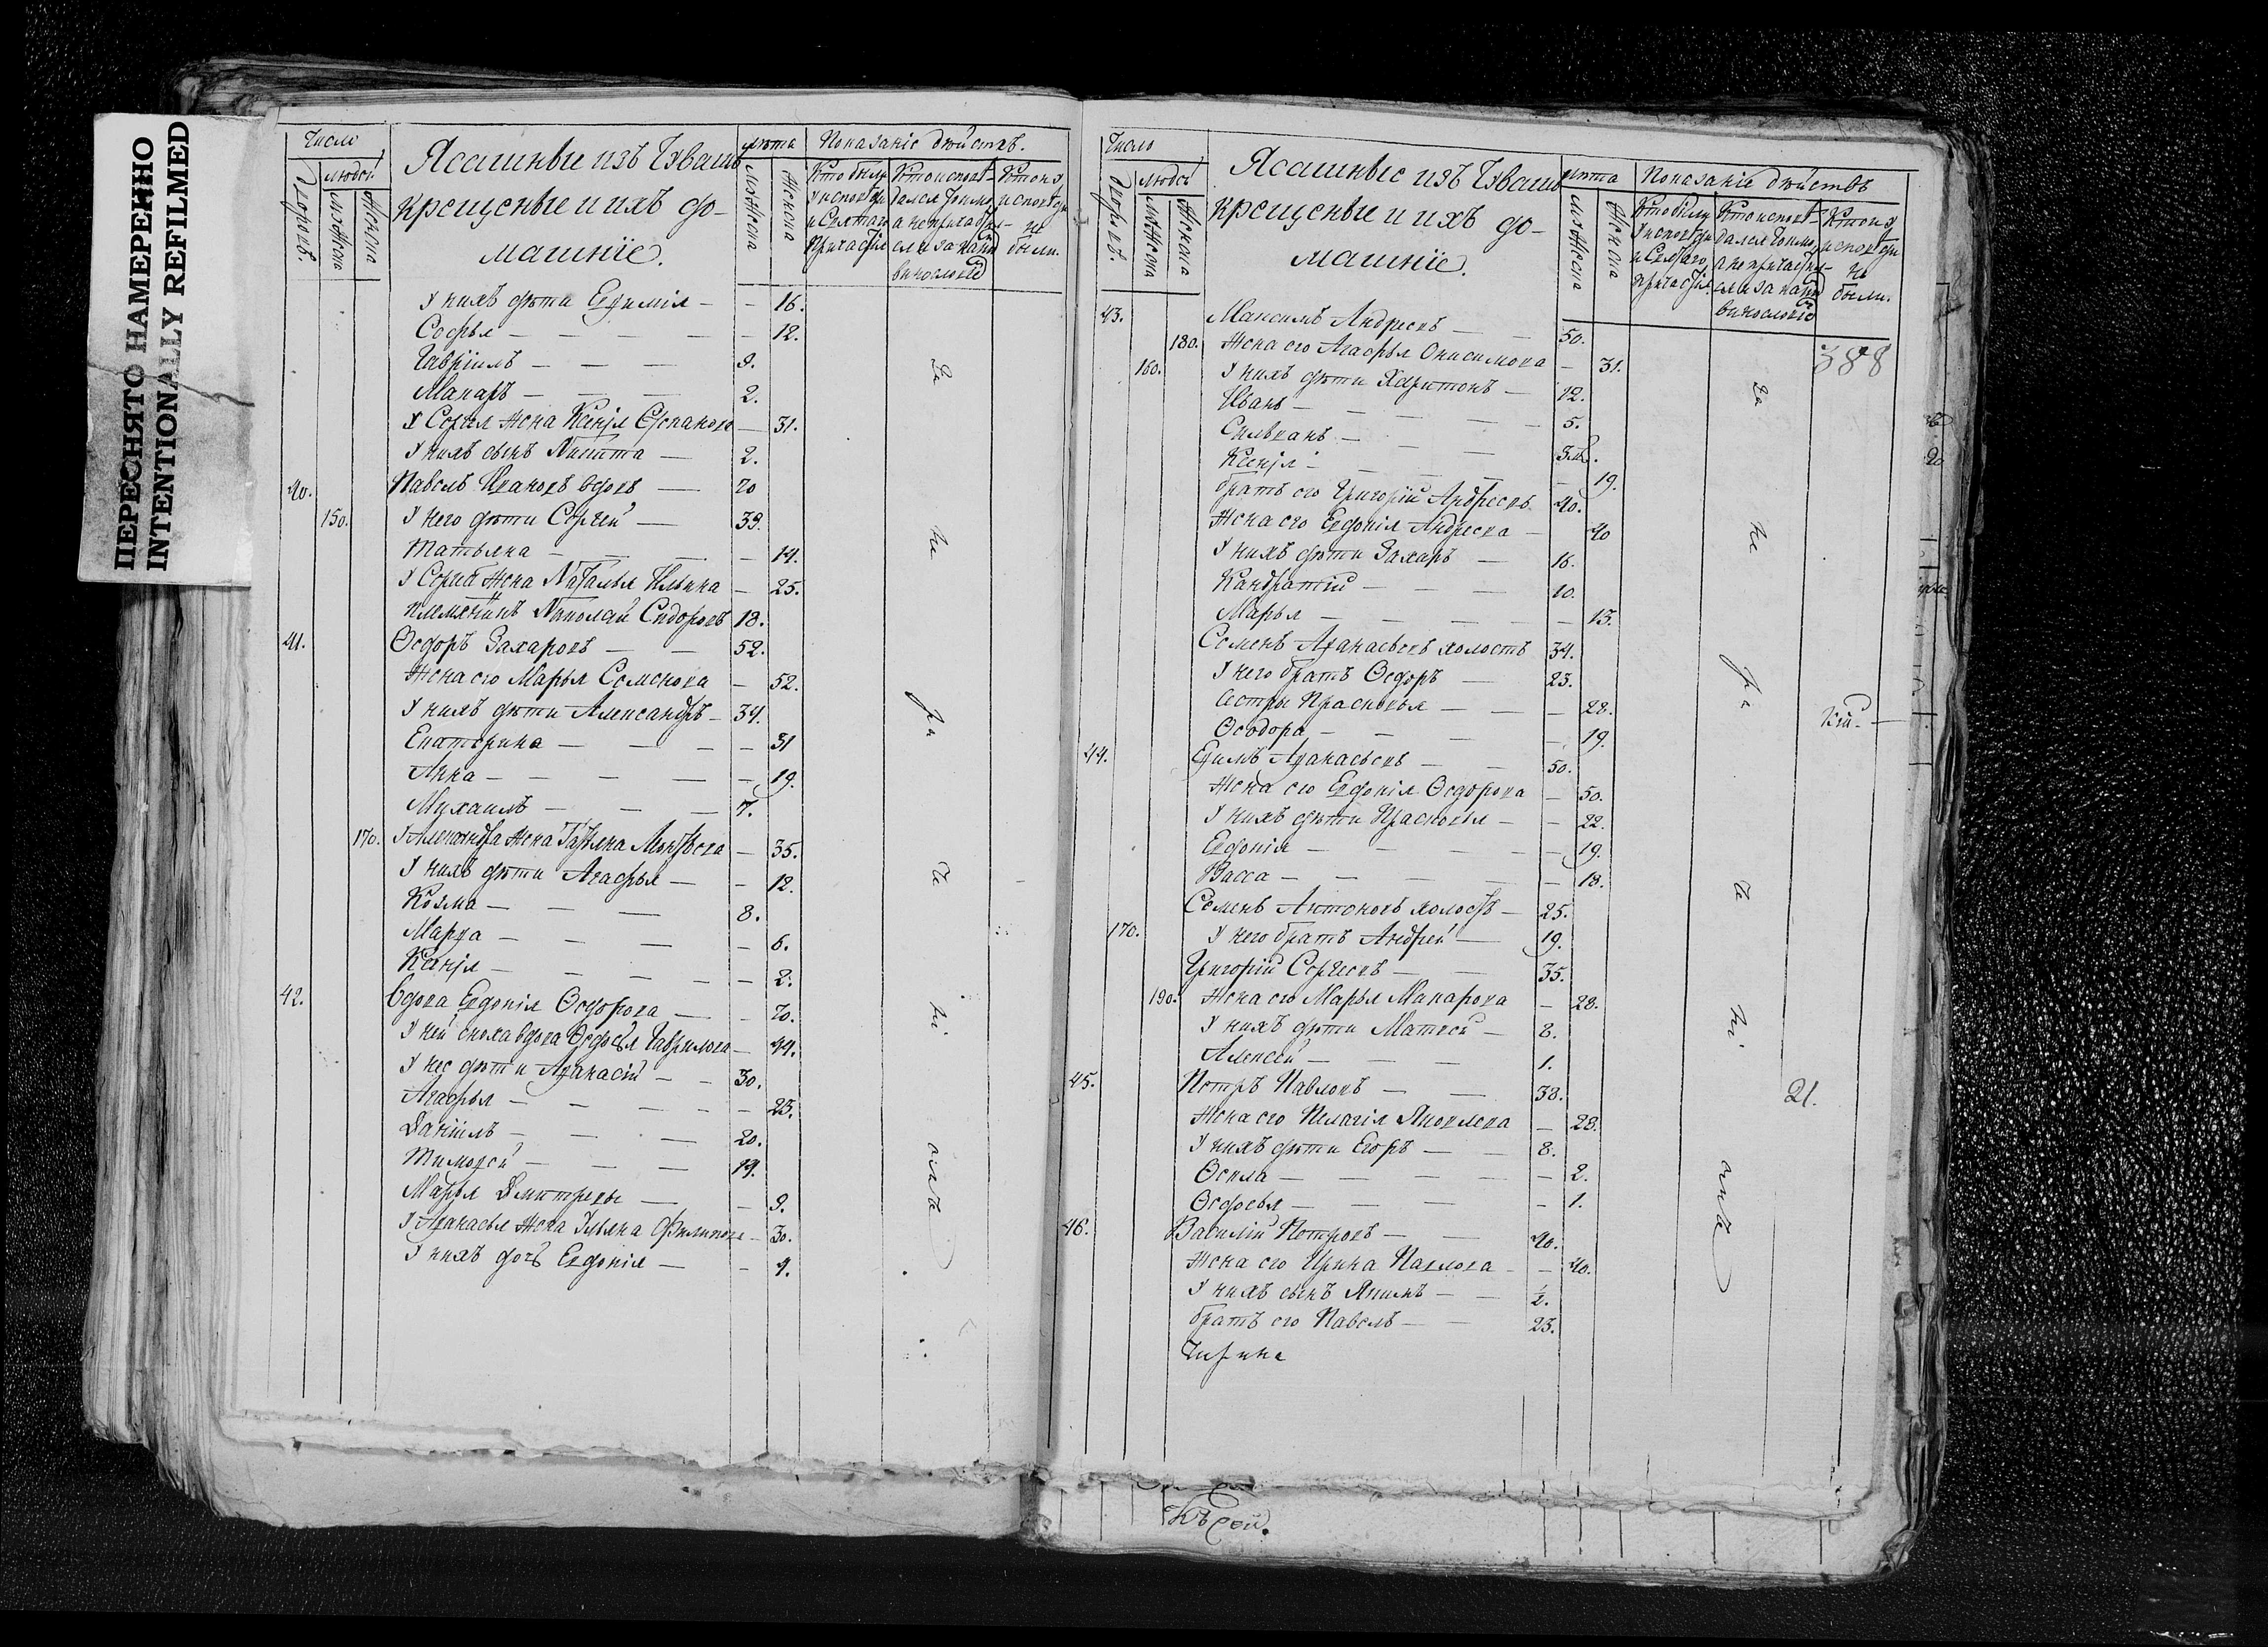 ПЕРЕСНЯТО НАМЕРЕННО
INTENTIONALLY REFILMED
Число
людей
дворовъ.
мужеска
женска
Ясашные изъ Чуваш
крещеные и ихъ до-
машніе.
лѣта
мужеска
женска
Показаніе дѣйствъ.
Кто былъ у исповѣди и Святаго причастія
Кто исповѣдался токмо, а не причастился и за какимъ винословіе
Кто и у исповѣди не были.
у нихъ дѣти Евфимія — — 16.
Софья — — — — 12.
Гавріилъ — — — 9.
Макаръ — — — 2.
у Сергия жена Ксенія Степанова — 31.
у нихъ сынъ Никита — 2.
40. Павелъ Ивановъ вдовъ — 70
150. у него дѣти Сергей — 39.
Татьяна — — — — 14.
у Сергия жена Наталья Ильина — 25.
племянникъ Николай Сидоровъ 18.
41. Ѳедоръ Захаровъ — — 52.
жена его Марья Семенова — 52.
у нихъ дѣти Александръ — 34.
Екатерина — — — — 31
Анна — — — — — 19.
Михаилъ — — — 7.
170. у Александра жена Татьяна — 35.
у нихъ дѣти Агафья — — 12.
Козма — — — 8.
Марфа — — — — 6.
Ксенія — — — — — 2.
42. вдова Евдокія Ѳедорова — — 70.
у ней сноха вдова Ѳедосья Гаврилова — 44.
у нее дѣти Афанасій — — 30.
Агафья — — — — — 23.
Даніилъ — — — 20.
Тимофей — — — 19.
Марья Дмитревы — — 9.
у Афанасья жена Ульяна Филипова — 30.
у нихъ дочь Евдокія — — 4.
За не ра чи ні емъ
Число
людей
дворовъ.
мужеска
женска
Ясашные изъ Чуваш
крещеные и ихъ до-
машніе.
лѣта
мужеска
женска
Показаніе дѣйствъ
Кто былъ у исповѣди и Святаго причастія.
Кто исповѣдался токмо, а не причастился и за какимъ винословіе
Кто и у исповѣди не были.
388
43. Максимъ Андреевъ — — 50.
180. жена его Агафья Онисимова — 31.
160. у нихъ дѣти Харитонъ — 12.
Иванъ — — — — 5.
Сильванъ — — —
Ксенія — — — — — 19.
братъ его Григорій Андреевъ 40.
жена его Евдокія Андреева — 40
у нихъ дѣти Захаръ — 16.
Кандратій — — — 10.
Марья — — — — — 13.
Семенъ Афанасьевъ холостъ 34.
у него братъ Ѳедоръ — 23.
сестры Прасковья — — — 28.
Ѳеодора — — — — 19.
44. Ефимъ Афанасьевъ — — 50.
жена его Евдокія Ѳедорова — 50.
у нихъ дѣти Прасковья — — 22.
Евдокія — — — — — 19.
Васса — — — — — 18.
Семенъ Антоновъ холостъ — 25.
170. у него братъ Андрей — 19.
Григорій Сергеевъ — — 35.
190. жена его Марья Макарова — 28.
у нихъ дѣти Матвей — 8.
Алексей — — — 1.
45. Петръ Павловъ — — 38.
жена его Пелагія Яковлева — 28.
у нихъ дѣти Егоръ — — 8.
Ѳекла — — — — — 2.
Ѳедосья — — — — 1.
46. Василій Петровъ — — 40.
жена его Ирина Павлова — — 40.
у нихъ сынъ Якимъ — — ½.
братъ его Павелъ — — 23.
За не ра чи ні емъ
21.